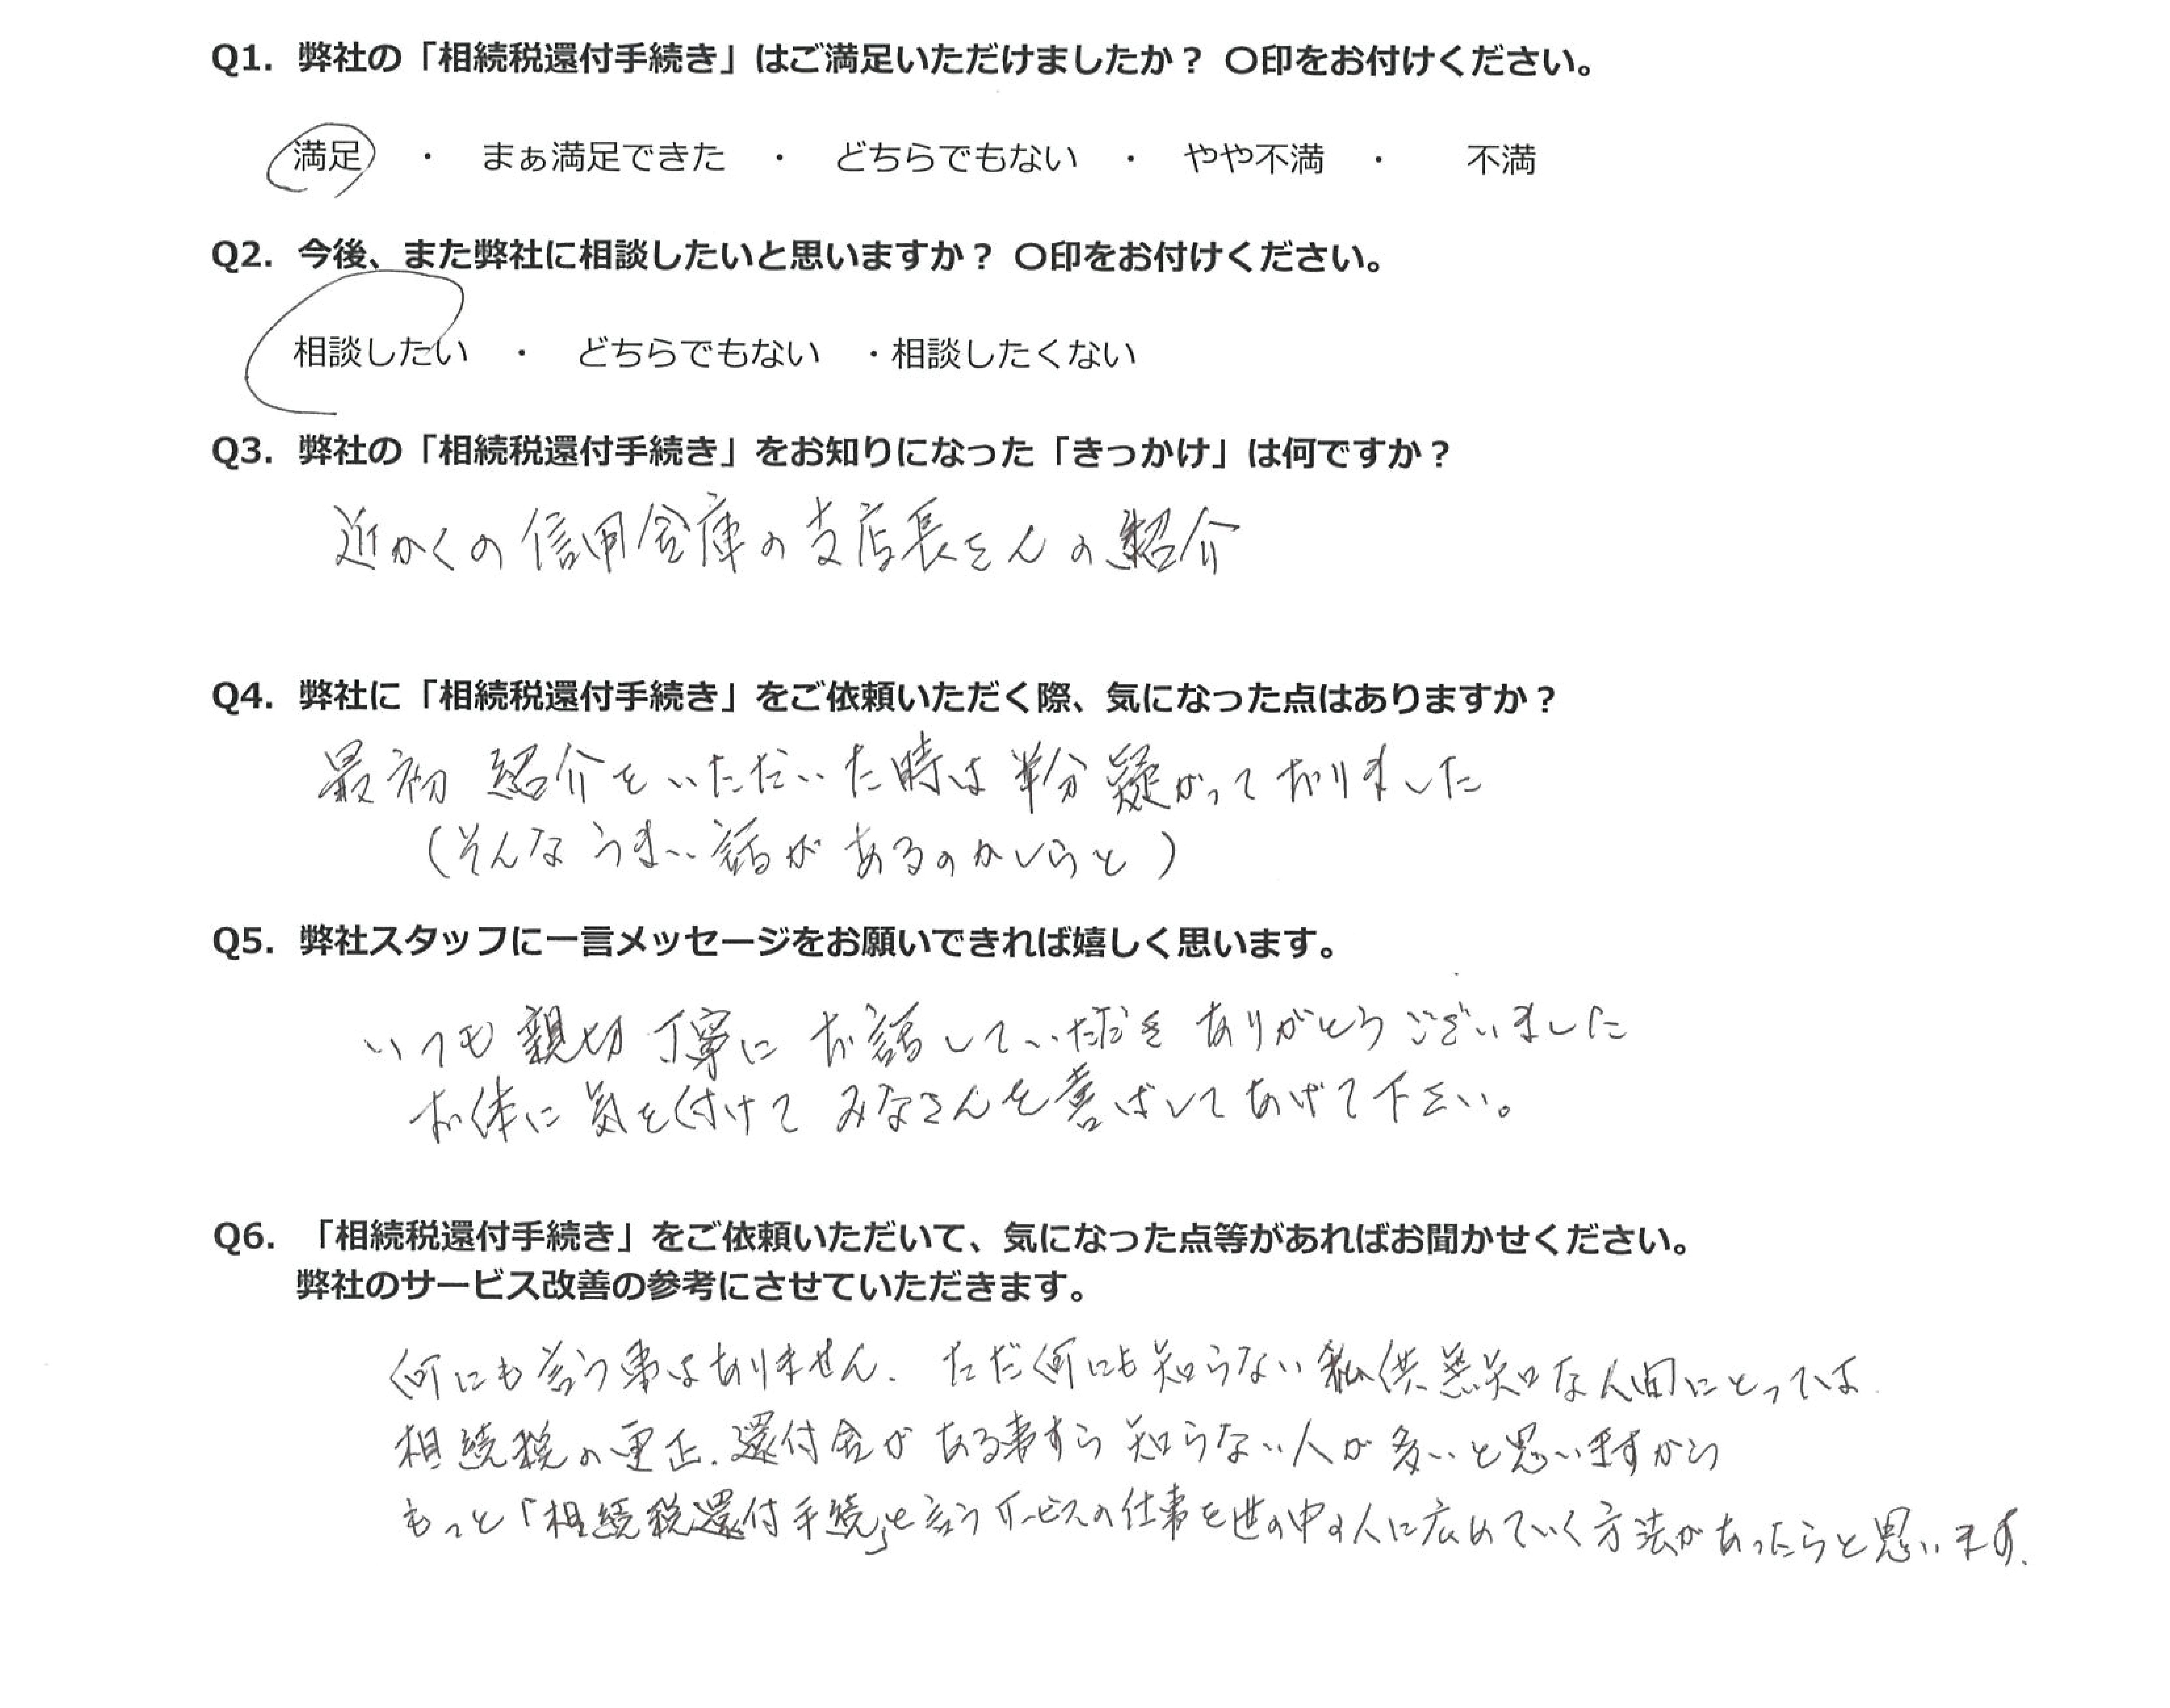 Q1. 弊社の「相続税還付手続き」はご満足いただけましたか？ 〇印をお付けください。
満足 ・ まぁ満足できた ・ どちらでもない ・ やや不満 ・ 不満
Q2. 今後、また弊社に相談したいと思いますか？ 〇印をお付けください。
相談したい ・ どちらでもない ・相談したくない
Q3. 弊社の「相続税還付手続き」をお知りになった「きっかけ」は何ですか？
近かくの信用金庫の支店長さんの紹介
Q4. 弊社に「相続税還付手続き」をご依頼いただく際、気になった点はありますか？
最初 紹介をいただいた時は半分疑がっておりました
（そんなうまい話があるのかしらと）
Q5. 弊社スタッフに一言メッセージをお願いできれば嬉しく思います。
いつも親切丁寧にお話していただき ありがとうございました
お体に気を付けて みなさんを喜ばしてあげて下さい。
Q6. 「相続税還付手続き」をご依頼いただいて、気になった点等があればお聞かせください。
弊社のサービス改善の参考にさせていただきます。
何にも言う事はありません. ただ何にも知らない私供無知な人間にとっては
相続税の更正.還付金がある事すら知らない人が多いと思いますから
もっと「相続税還付手続」と言うサービスの仕事を世の中の人に広めていく方法があったらと思います.